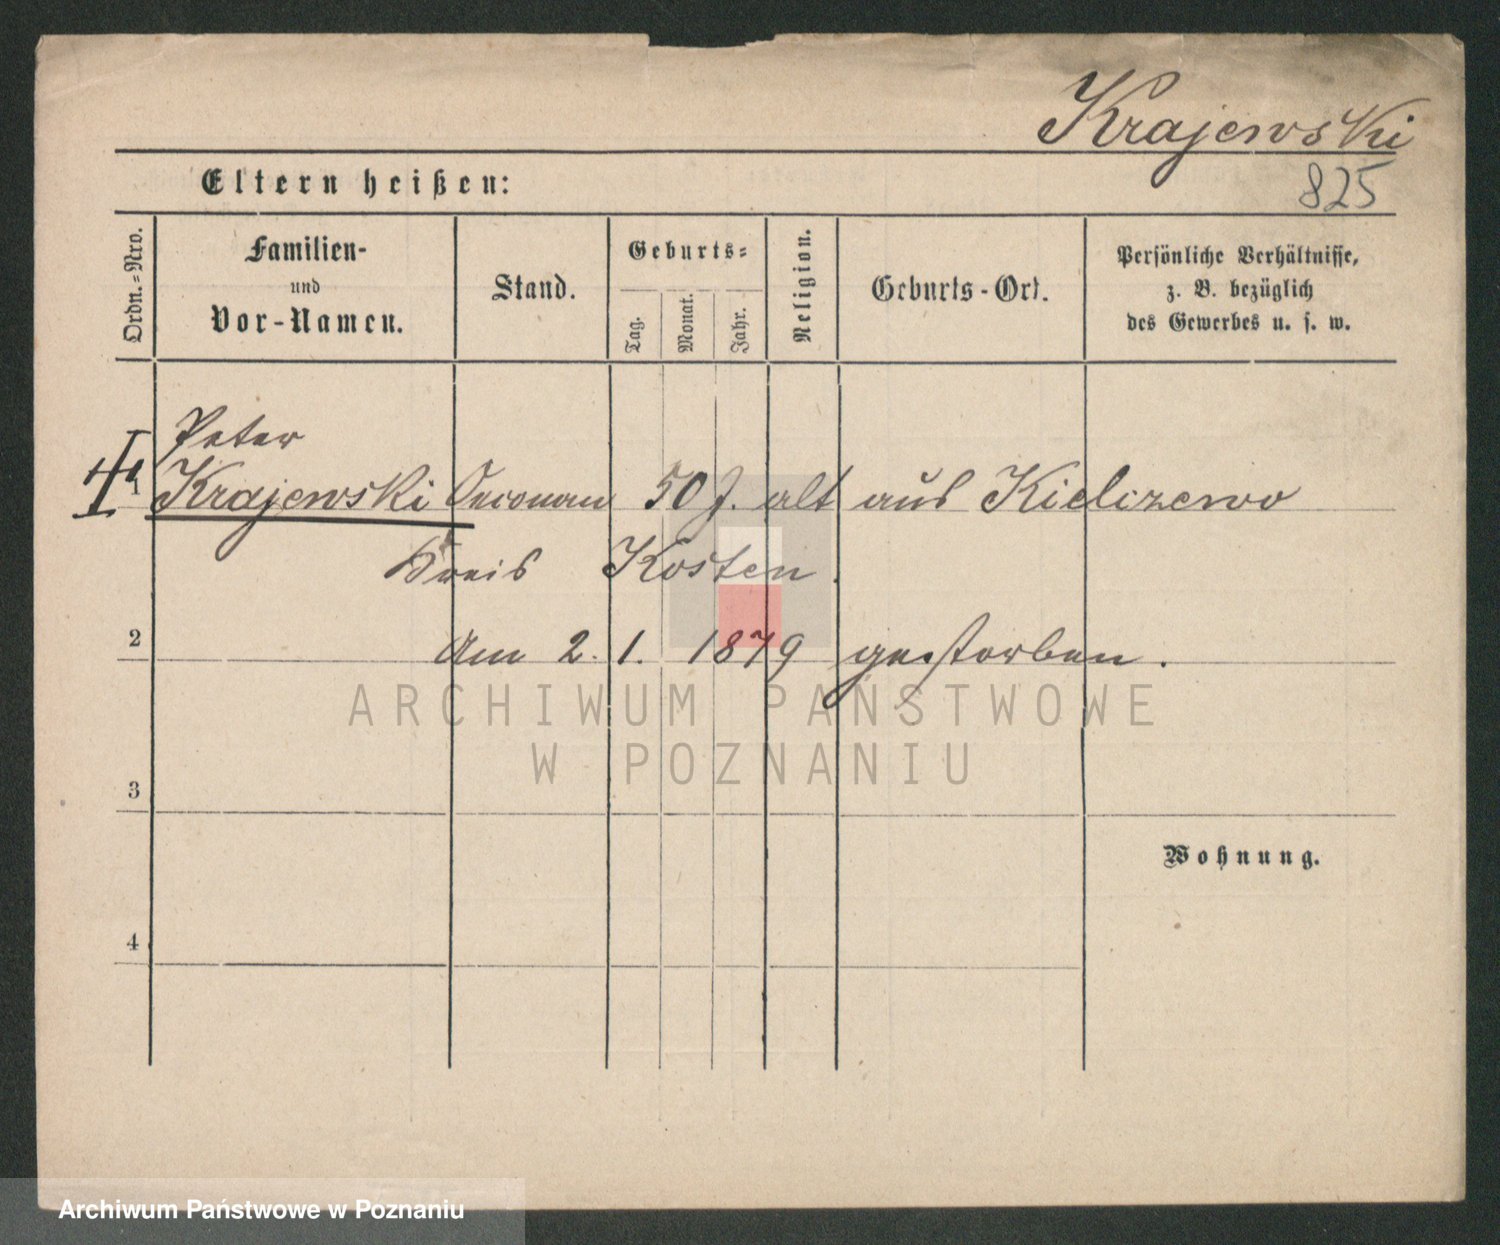 Krajewski
825
Eltern heißen:
Ordn.-Nro.
Familien-
und
Vor-Namen.
Stand.
Geburts-
Tag.
Monat.
Jahr.
Religion.
Geburts-Ort.
Persönliche Verhältnisse,
z. B. bezüglich
des Gewerbes u. s. w.
Peter
1 Krajewski Oeconom 50 J. alt aus Kielczewo
Kreis Kosten.
2 Am 2. 1. 1879 gestorben.
ARCHIWUM PAŃSTWOWE
W POZNANIU
3
Wohnung.
4
Archiwum Państwowe w Poznaniu